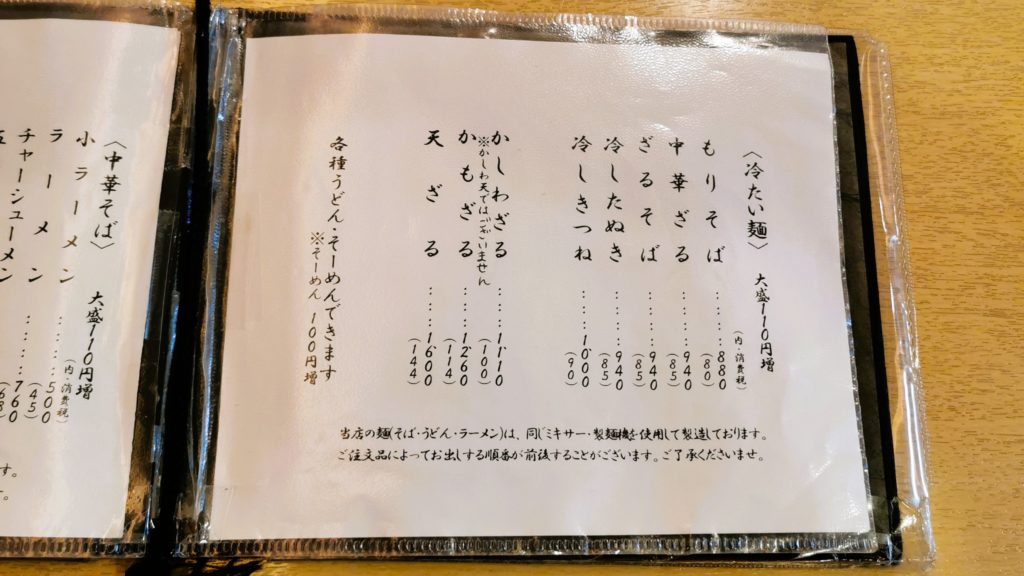 〈冷たい麺〉 大盛110円増
(内・消費税)
もりそば ……880
(80)
中華ざる ……940
(85)
ざるそば ……940
(85)
冷したぬき ……940
(85)
冷しきつね ……1000
(90)
かしわざる ……1110
(100)
※かしわ天ではございません
かもざる ……1260
(114)
天ざる ……1600
(144)
各種うどん・そーめんできます
※そーめん 100円増
当店の麺(そば・うどん・ラーメン)は、同じミキサー・製麺機を使用して製造しております。
ご注文品によってお出しする順番が前後することがございます。ご了承くださいませ。
〈中華そば〉 大盛110円増
(内・消費税)
小ラーメン ……500
(45)
ラーメン ……760
(68)
チャーシューメン
五
す。
す。